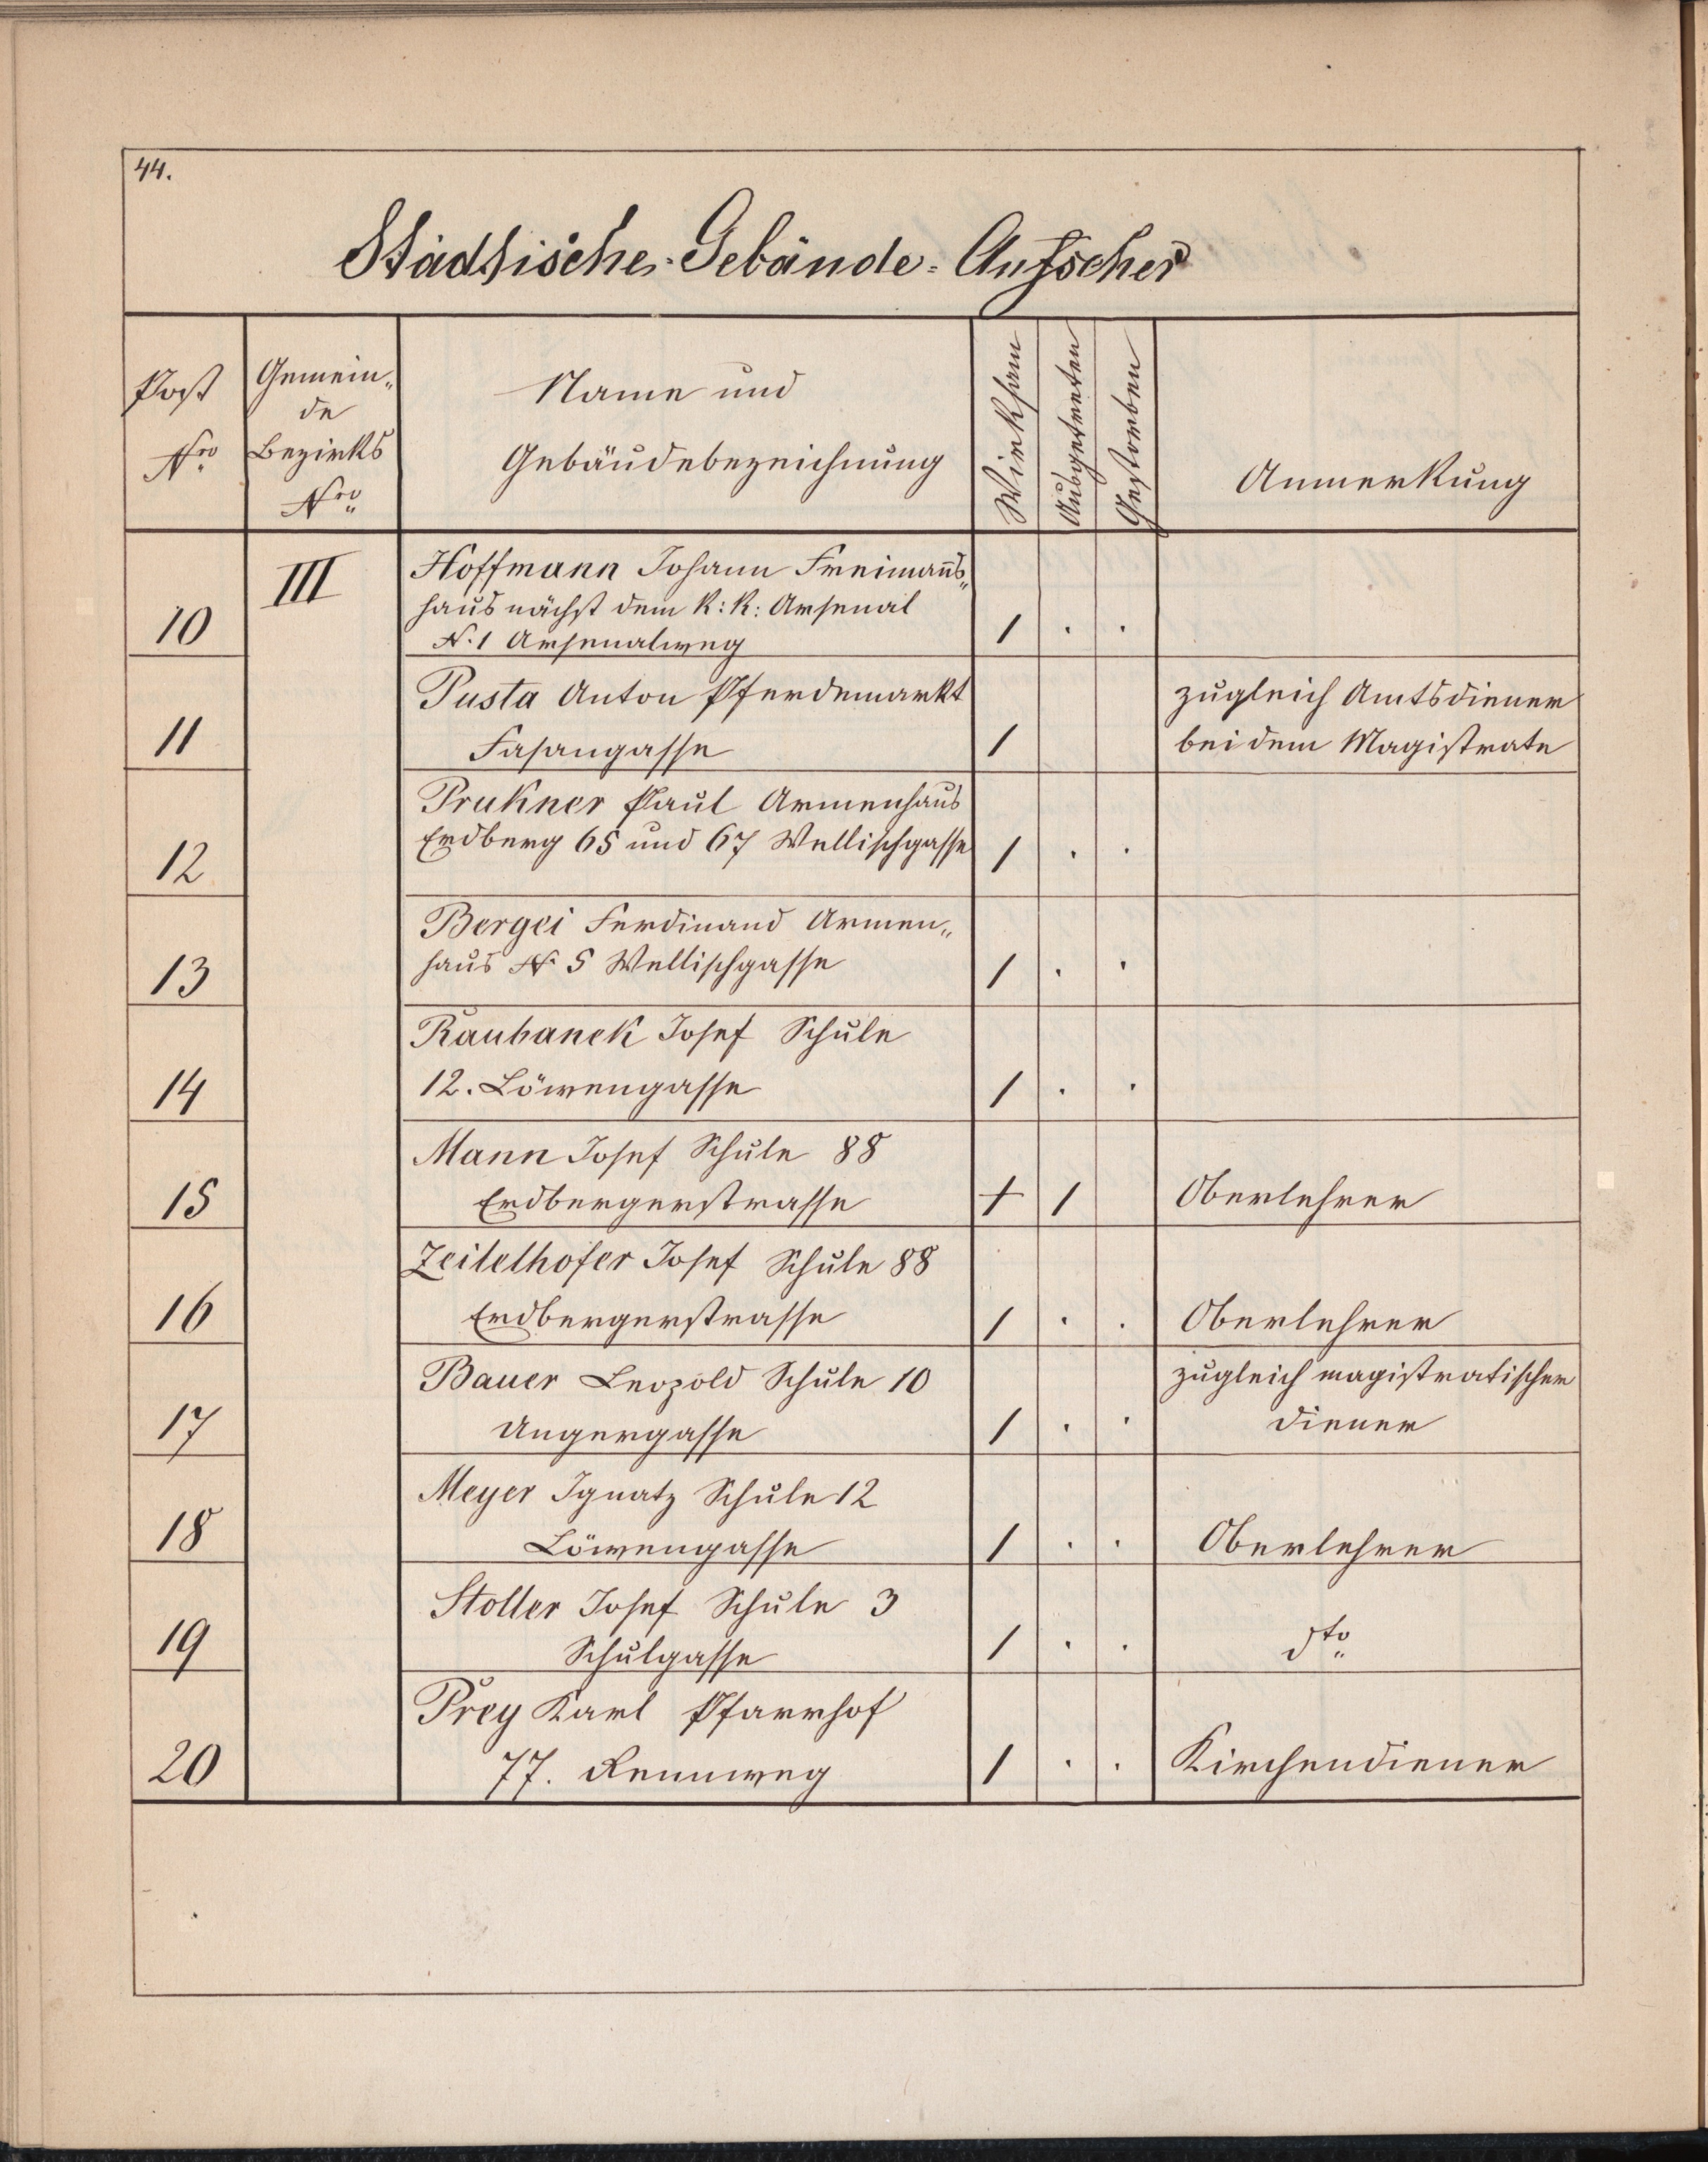 44.
Städtische-Gebäude-Aufseher
Post
Nro
Gemein„
de
Bezirks
Nro
Name und
Gebäudebezeichnung
Wirksam
Ausgetreten
Gestorben
Anmerkung
III
Hoffmann Johann Freimanns„
haus nächst dem K: K: Arsenal
10 N. 1 Arsenalweg 1 . .
Pusta Anton Pferdemarkt zugleich Amtsdiener
11 Fasangasse 1 bei dem Magistrate
Prukner Paul Armenhaus
12 Erdberg 65 und 67 Wellischgasse 1 . .
Bergei Ferdinand Armen„
13 haus N. 5 Wellischgasse 1 . .
Raubanek Josef Schule
14 12. Löwengasse 1 . .
Mann Josef Schule 88
15 Erdbergerstrasse 1 1 Oberlehrer
Zeilelhofer Josef Schule 88
16 Erdbergerstrasse 1 . . Oberlehrer
Bauer Leopold Schule 10 zugleich magistratischer
17 Ungergasse 1 . . Diener
Meyer Ignatz Schule 12
18 Löwengasse 1 . . Oberlehrer
Stoller Josef Schule 3
19 Schulgasse 1 . . dto
Prey Karl Pfarrhof
20 77. Rennweg 1 . . Kirchendiener